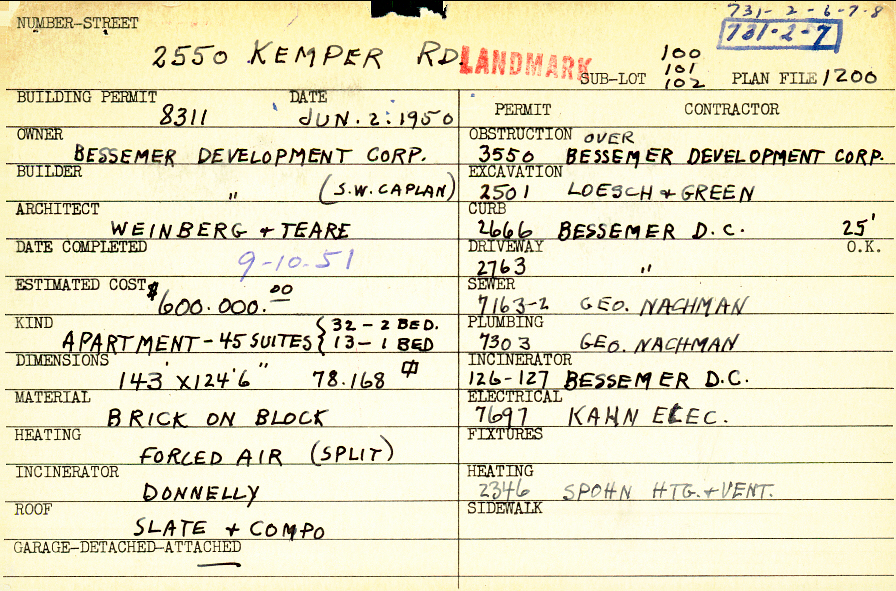 731-2-6-7-8
NUMBER-STREET
731-2-7
2550 KEMPER RD. LANDMARK
SUB-LOT 100 101 102 PLAN FILE 1200
BUILDING PERMIT DATE
8311 JUN. 2. 1950
PERMIT CONTRACTOR
OWNER
BESSEMER DEVELOPMENT CORP.
BUILDER
" (S.W. CAPLAN)
ARCHITECT
WEINBERG + TEARE
DATE COMPLETED
9-10-51
ESTIMATED COST
$600.000.00
KIND
APARTMENT-45 SUITES { 32-2 BED.
{ 13-1 BED
DIMENSIONS
143' X 124'6" 78.168
MATERIAL
BRICK ON BLOCK
HEATING
FORCED AIR (SPLIT)
INCINERATOR
DONNELLY
ROOF
SLATE + COMPO
GARAGE-DETACHED-ATTACHED
OBSTRUCTION OVER
3550 BESSEMER DEVELOPMENT CORP.
EXCAVATION
2501 LOESCH + GREEN
CURB
2666 BESSEMER D.C. 25'
DRIVEWAY O.K.
2763 "
SEWER
7163-2 GEO. NACHMAN
PLUMBING
7303 GEO. NACHMAN
INCINERATOR
126-127 BESSEMER D.C.
ELECTRICAL
7697 KAHN ELEC.
FIXTURES
HEATING
2346 SPOHN HTG. + VENT.
SIDEWALK